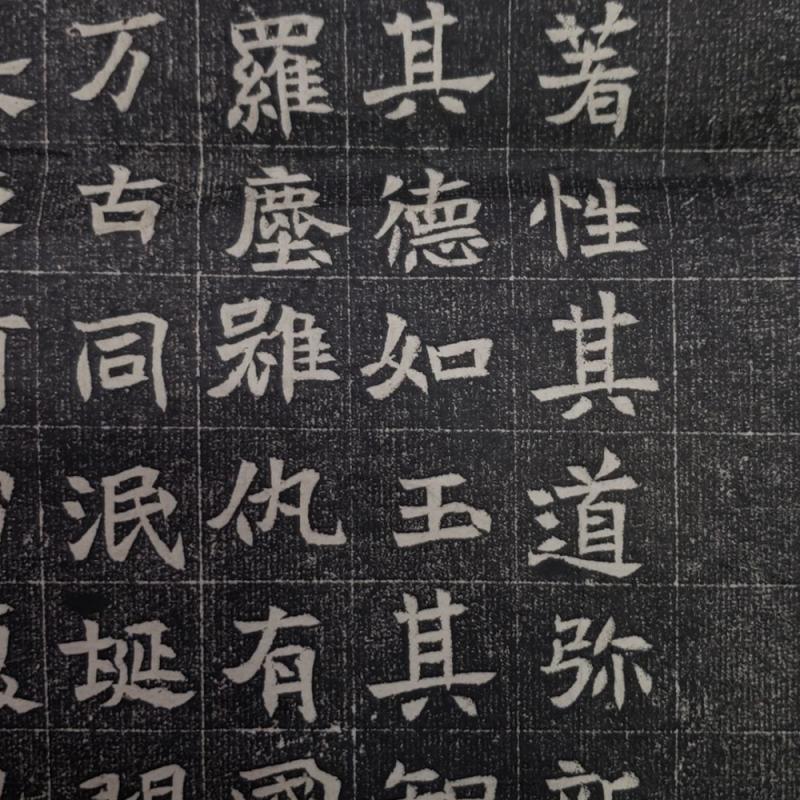 著性其道弥新
其德如玉其
羅塵雖仇有國
万古同泯埏